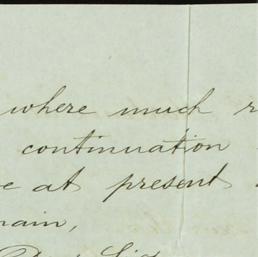 where much
continuation
at present
main,